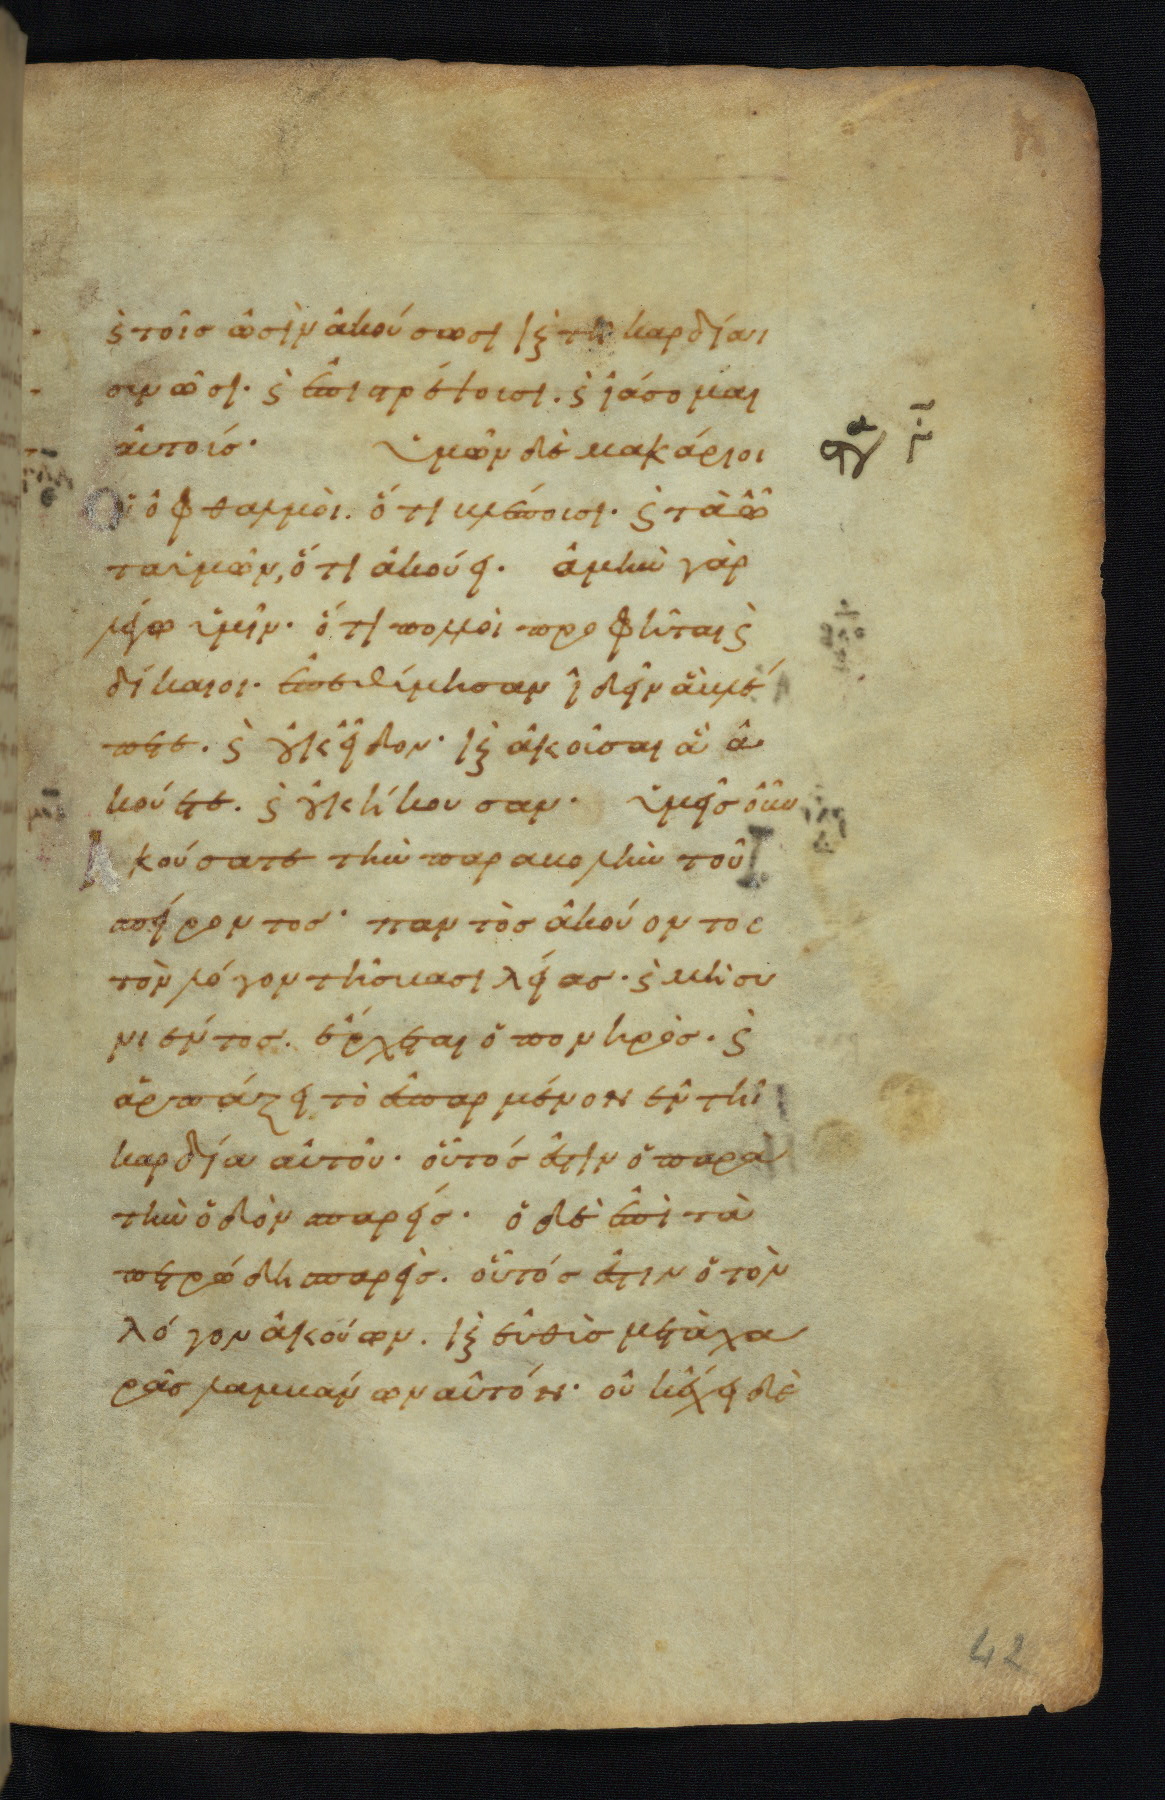 ϛ τοῖσ ὠσὶν ἀκούσωσι κ̀ τῆ καρδία
συνῶσι. ϛ ἐπιστρέψωσι. ϛ ἰάσομαι
αὐτούσ. ὑμῶν δὲ μακάριοι
οἱ ὀφθαλμοὶ. ὅτι βλέπουσι. ϛ τὰ ὦ
τα ὑμῶν, ὅτι ἀκούει. ἀμὴν γὰρ
λέγω ὑμῖν. ὅτι πολλοὶ προφῆται ϛ
δίκαιοι. ἐπεθύμησαν ἰδεῖν ἃ βλέ
πετε. ϛ οὐκ εἶδον. κ̀ ἀκοῦσαι ἃ ἀ
κούετε. ϛ οὐκ ἤκουσαν. ὑμεῖσ οὖν
Ἀκούσατε τὴν παραβολὴν τοῦ
σπείροντοσ. παντὸσ ἀκούοντοσ
τὸν λόγον τῆσ βασιλείασ. ϛ μὴ συ
νιέντοσ. ἔρχεται ὁ πονηρὸσ. ϛ
ἁρπάζει τὸ ἐσπαρμένον ἐν τῆ
καρδία αὐτοῦ. οὗτόσ ἐστιν ὁ παρὰ
τὴν ὁδὸν σπαρείσ. ὁ δὲ ἐπὶ τὰ
πετρώδη σπαρεὶσ. οὗτόσ ἐστιν ὁ τὸν
λόγον ἀκούων. κ̀ εὐθὺσ μετὰ χα
ρᾶσ λαμβάνων αὐτόν. οὐκ ἔχει δὲ
42